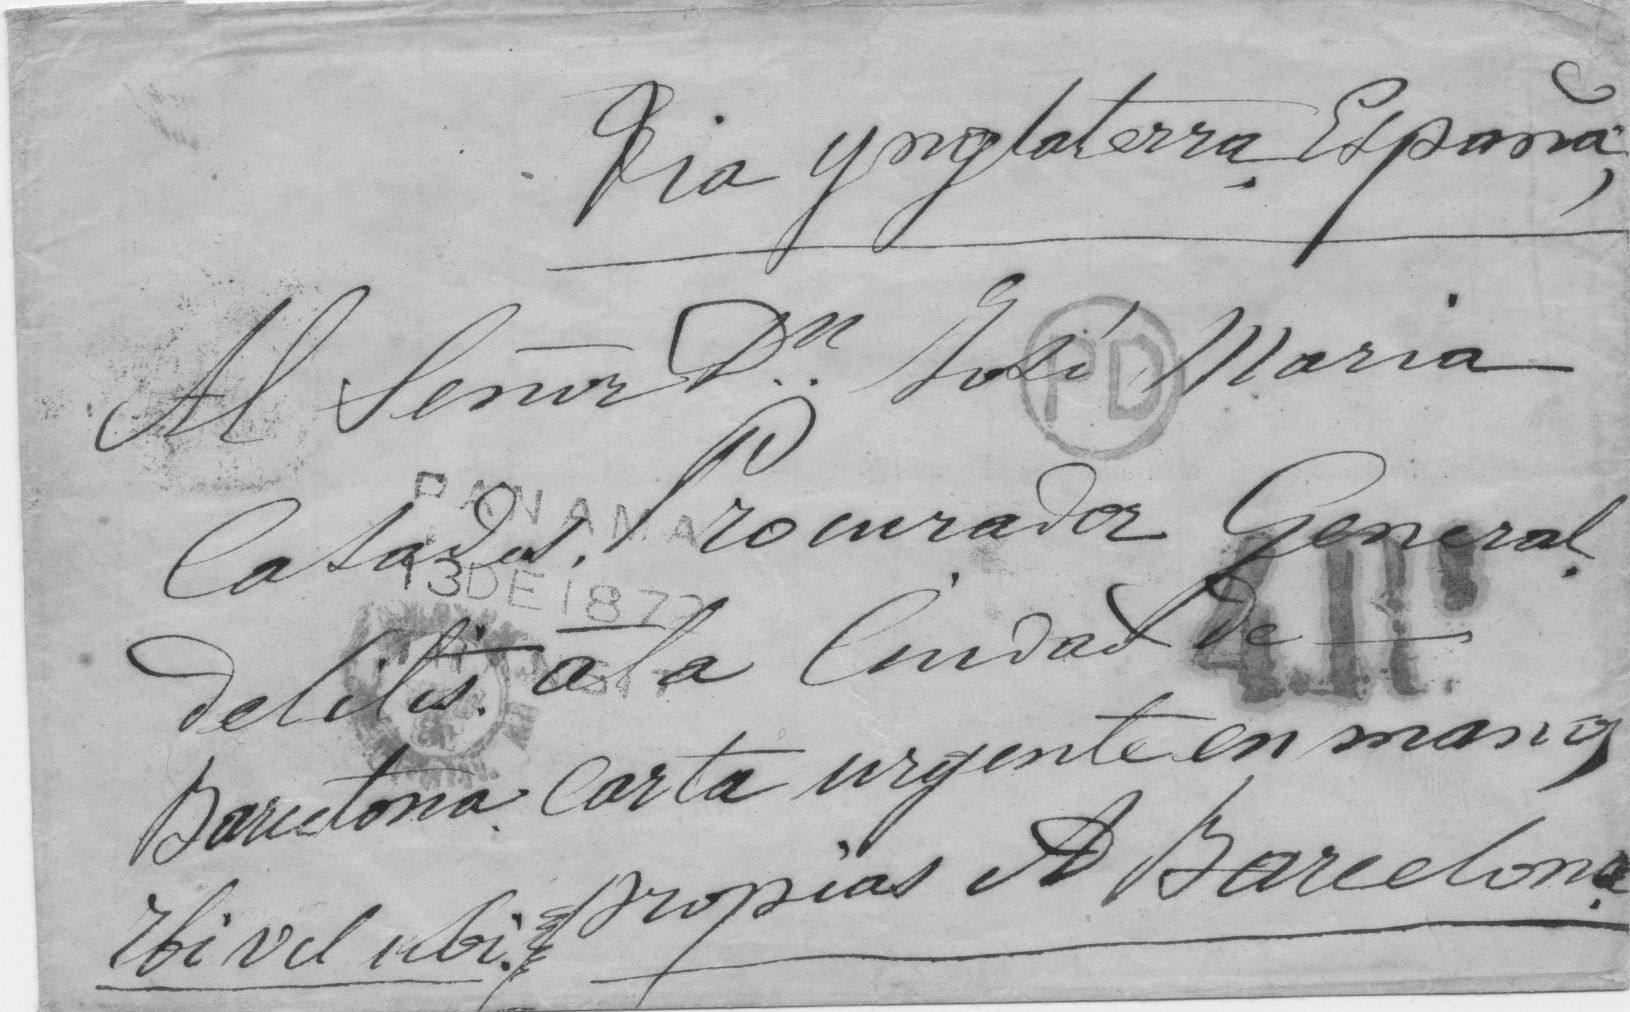 Via Ynglaterra. España,
Al Señor Dn. José Maria
PD
Casades. Procurador General.
PANAMA
13 DE 1872
4 Rs
de litis. a la Ciudad de
Barcelona. Carta urgente en manos
propias A Barcelona.
Ibi vel ubi.